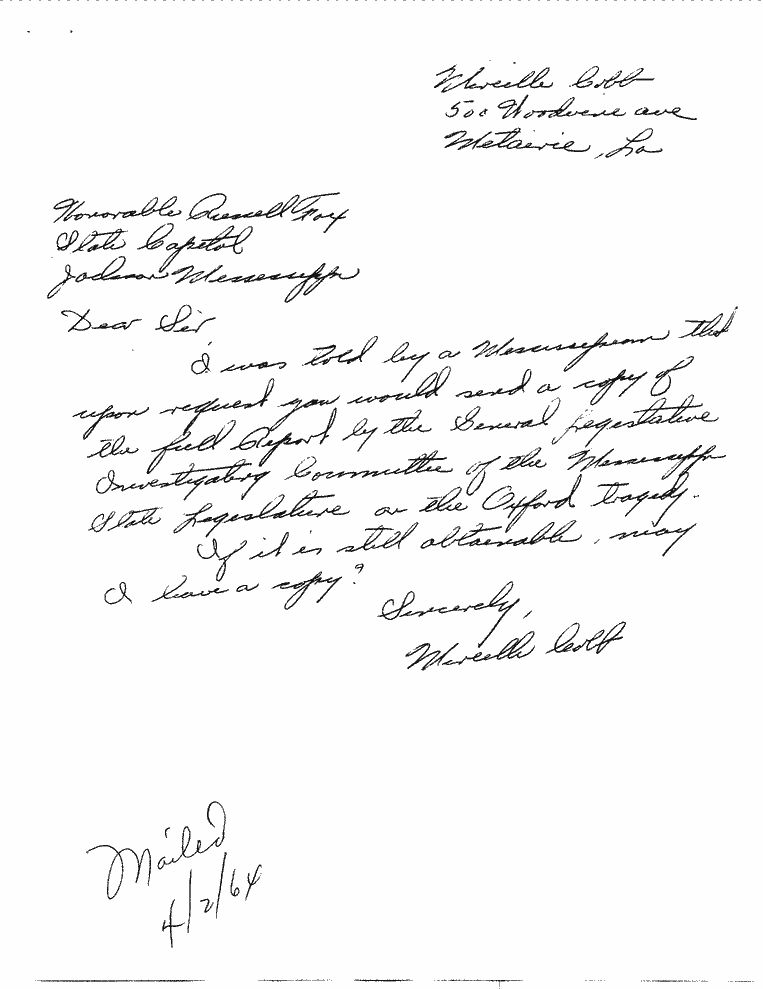 Mireille Cobb
500 Woodvine ave
Metairie, La
Honorable Russell Fox
State Capitol
Jackson Mississippi
Dear Sir
I was told by a Mississippian that
upon request you would send a copy of
the full Report by the General Legislative
Investigating Committee of the Mississippi
State Legislature on the Oxford tragedy.
If it is still obtainable, may
I have a copy?
Sincerely,
Mireille Cobb
Mailed
4/2/64